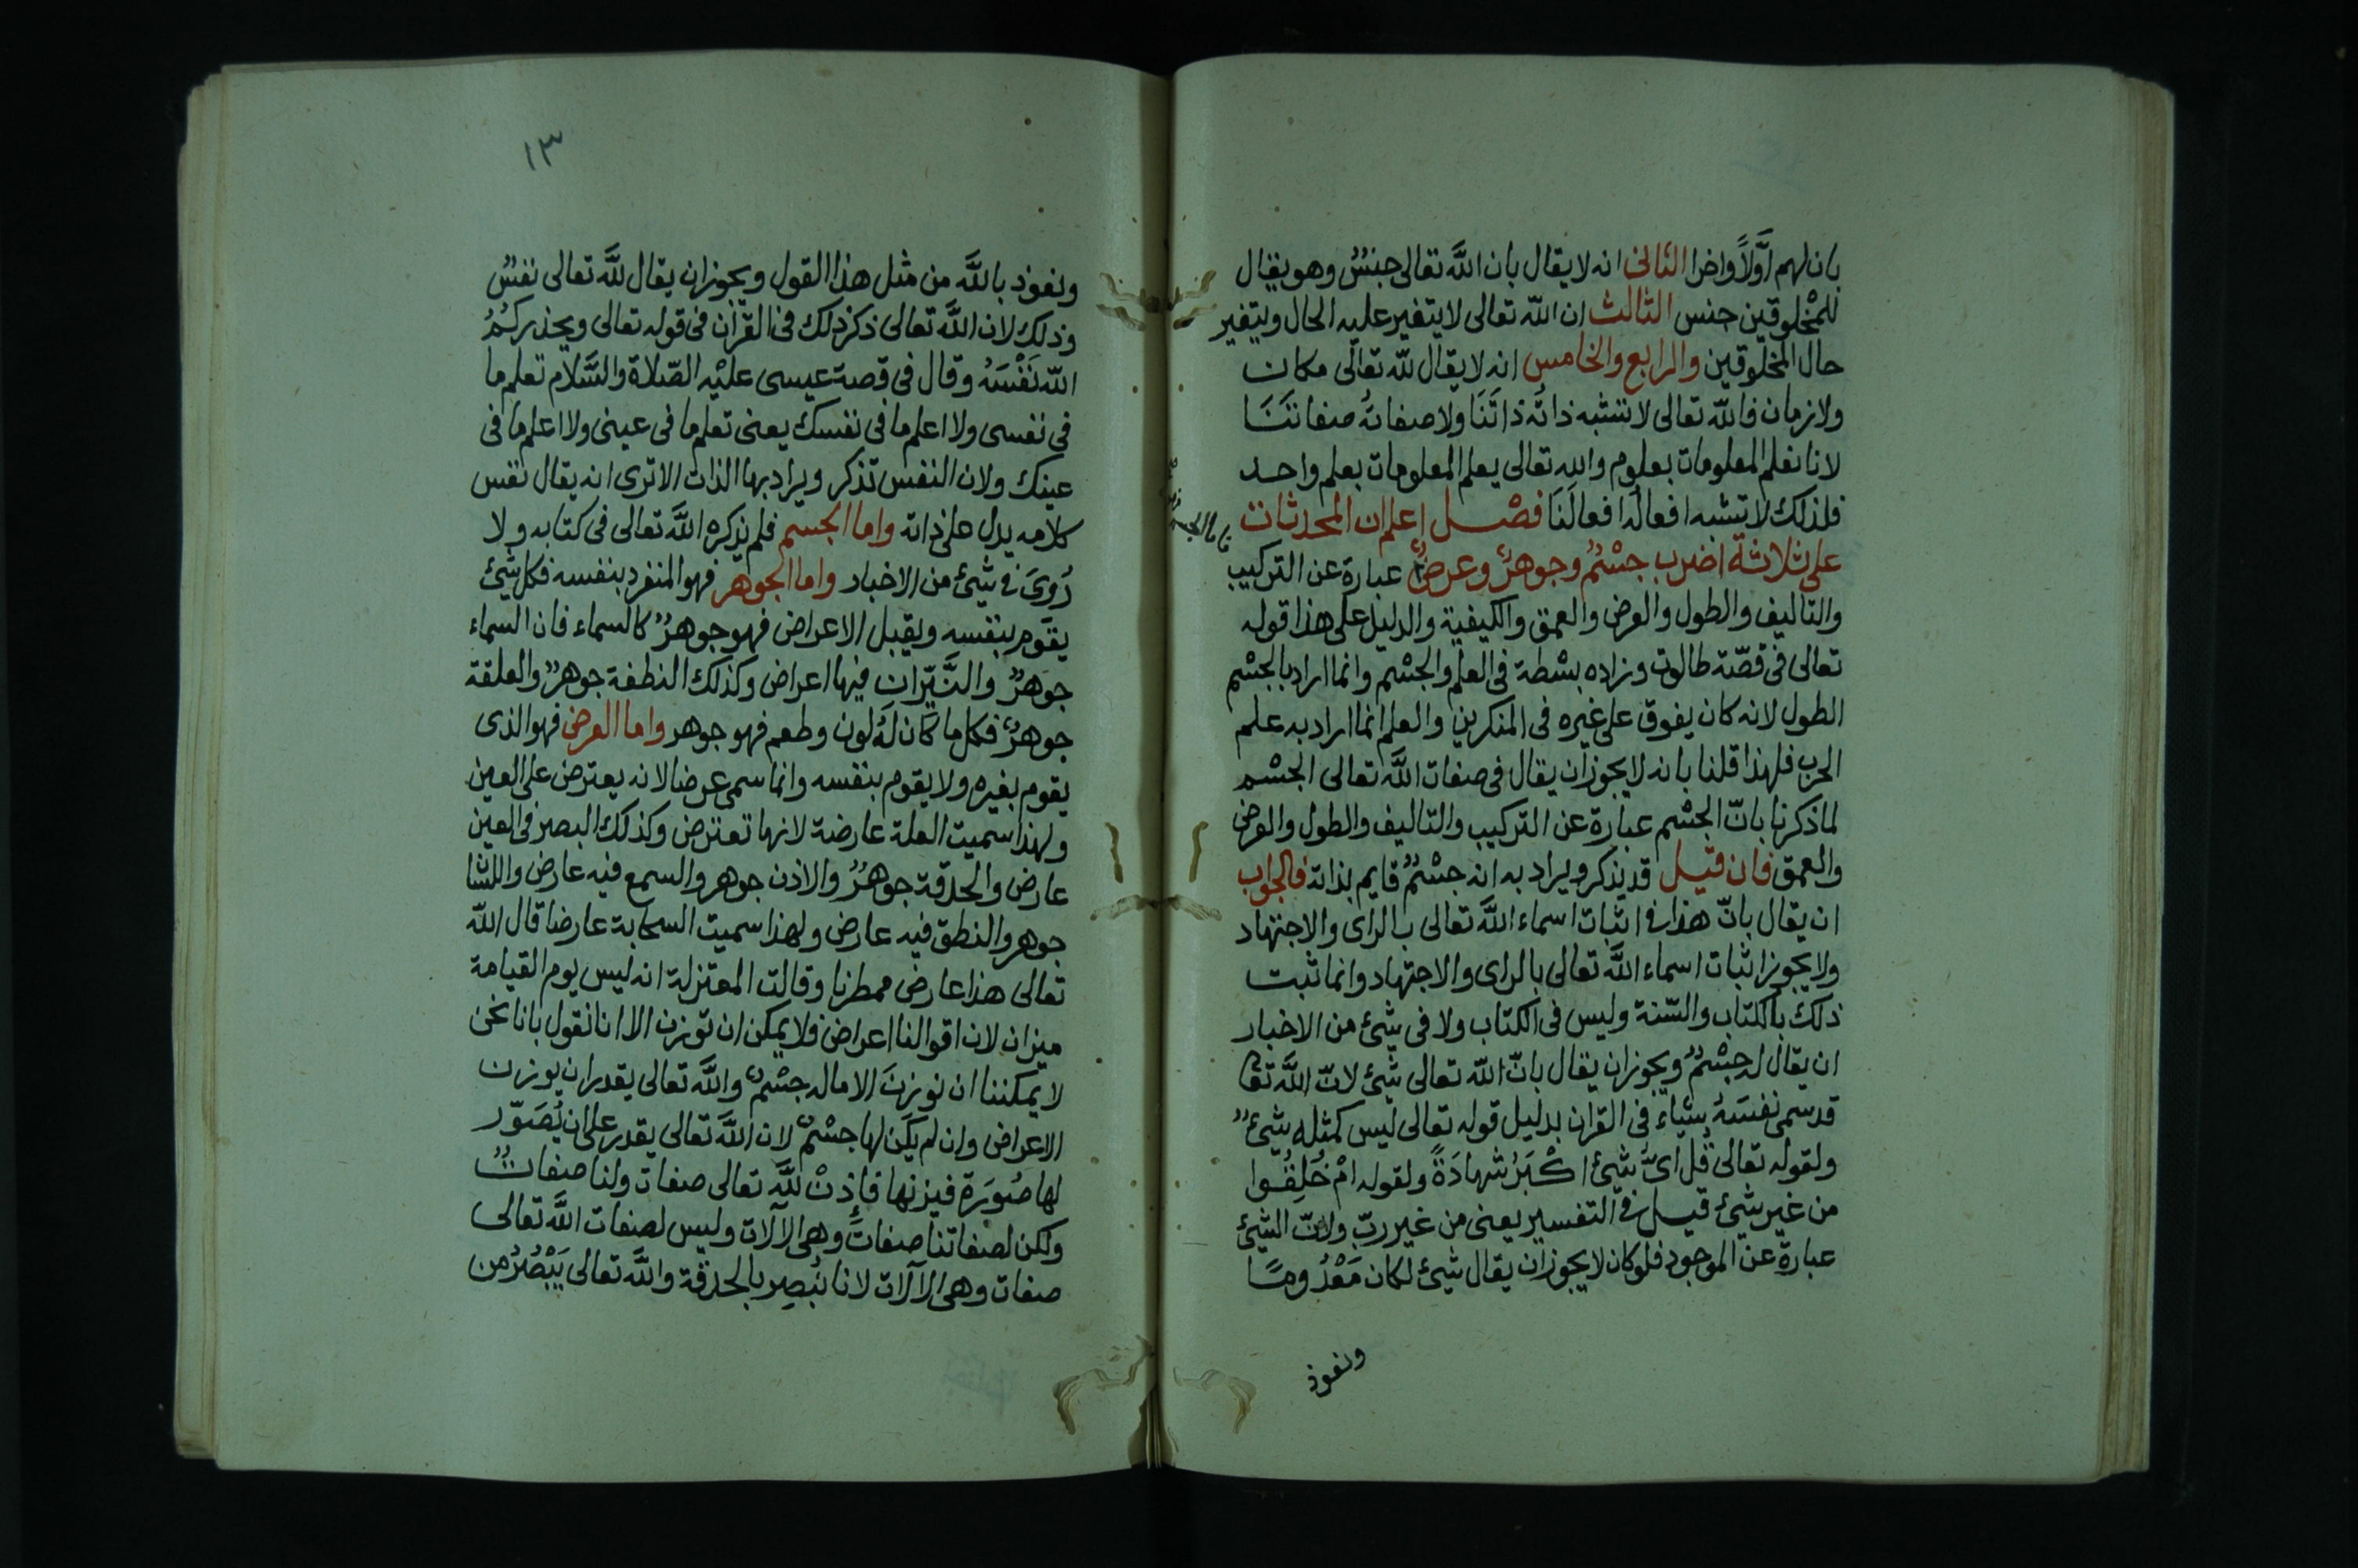 بان لهم اَوَّلاً واخرا الثانى انه لا يقال بان اللَّه تعالى جنسٌ وهو يقال
للمخلوقين جنس الثالث ان اللّه تعالى لا يتغير عليه الحال ويتغير
حال المخلوقين والرابع والخامس انه لا يقال للّه تعالى مكان
ولا زمان فاللّه تعالى لا تشبه ذاتُه ذاتَنَا ولا صفاتهُ صفاتنَنَا
لانا نعلم المعلومات بعلوم والله تعالى يعلم المعلومات بعلم واحد
فلذلك لا تشبه افعالُه افعالَنَا فصْل اعلم ان المحدثات
على ثلاثة اضرب جسْمٌ وجوهرٌ وعرضٌ عبارة عن التركيب
والتاليف والطول والعرض والعمق والكيفية والدليل على هذا قوله
تعالى فى قصّة طالوت وزاده بسْطة فى العلم والجسْم وانما اراد بالجسْم
الطول لانه كان يفوق على غيره فى المنكرين والعلم انما اراد به علم
الحرب فلهذا قلنا بانه لا يجوز ان يقال فى صفات اللَّه تعالى الجسْم
لما ذكرنا بانّ الجسْم عبارة عن التركيب والتاليف والطول والعرض
والعمق فان قيل قد يذكر ويراد به انه جسْمٌ قايم بذاته فالجواب
ان يقال بانّ هذا فى اثبات اسماء اللَّه تعالى بالراى والاجتهاد
ولا يجوز اثبات اسماء اللَّه تعالى بالراى والاجتهاد وانما ثبت
ذلك بالكتاب والسّنة وليس فى الكتاب ولا فى شئ من الاخبار
ان يقال له جسْمٌ ويجوز ان يقال بانّ اللّه تعالى شئ لانّ اللَّه تعا
قد سمى نفسَهُ بشياء فى القران بدليل قوله تعالى ليس كمثله شئٌ
ولقوله تعالى قُل اىُّ شئ اكْبَرُ شهادَةً ولقوله امْ خُلِقُوا
من غير شئ قيل فى التفسير يعنى من غير ربّ ولانّ الشئ
عبارة عن الموجود فلو كان لا يجوز ان يقال شئ لكان مَعْدُومًا
ونعوذ
١٣
ونعوذ باللَّه من مثل هذا القول ويجوز ان يقال للَّه تعالى نفسٌ
وذلك لان اللَّه تعالى ذكر ذلك فى القرآن فى قوله تعالى ويحذركُمُ
اللّه نَفْسَهُ وقال فى قصة عيسى عليْه الصّلاة والسَّلام تعلم ما
فى نفسى ولا اعلم ما فى نفسك يعنى تعلم ما فى عينى ولا اعلم ما فى
عينك ولان النفس تذكر ويراد بها الذات الا ترى انه يقال نفس
كلامه يدل على ذاته واما الجسم فلم يذكره اللَّه تعالى فى كتابه ولا
رُوىَ فى شئ من الاخبار واما الجوهر فهو المنفرد بنفسه فكل شئ
يقوم بنفسه ويقبل الاعراض فهو جوهرٌ كالسماء فان السماء
جوهرٌ والنَّيّران فيها اعراض وكذلك النطفة جوهرٌ والعلقة
جوهرٌ فكل ما كان لَهُ لون وطعم فهو جوهر واما العرض فهو الذى
يقوم بغيره ولا يقوم بنفسه وانما سمى عرضا لانه يعترض على العين
ولهذا سميت العلة عارضة لانها تعترض وكذلك البصر فى العين
عارض والحدقة جوهرٌ والاذن جوهر والسمع فيه عارض واللسا
جوهر والنطق فيه عارض ولهذا سميت السحابة عارضا قال اللّه
تعالى هذا عارض ممطرنا وقالت المعتزلة انه ليس يوم القيامة
ميزان لان اقوالنا اعراض فلا يمكن ان توزن الا انا نقول بانا نحن
لا يمكننا ان نوزنَ الا ماله جسْمٌ واللَّه تعالى يقدر ان يوزن
الاعراض وان لم يكن لها جسْمٌ لان اللَّه تعالى يقدر على ان يُصَوّر
لها صُورَة فيزنها فإذنْ للَّه تعالى صفات ولنا صفاتٌ
ولكن لصفاتنا صفاتٌ وهى الآلات وليس لصفات اللَّه تعالى
صفات وهى الآلات لانا نُبصِر بالحدقة واللَّه تعالى يَبْصُرُ من